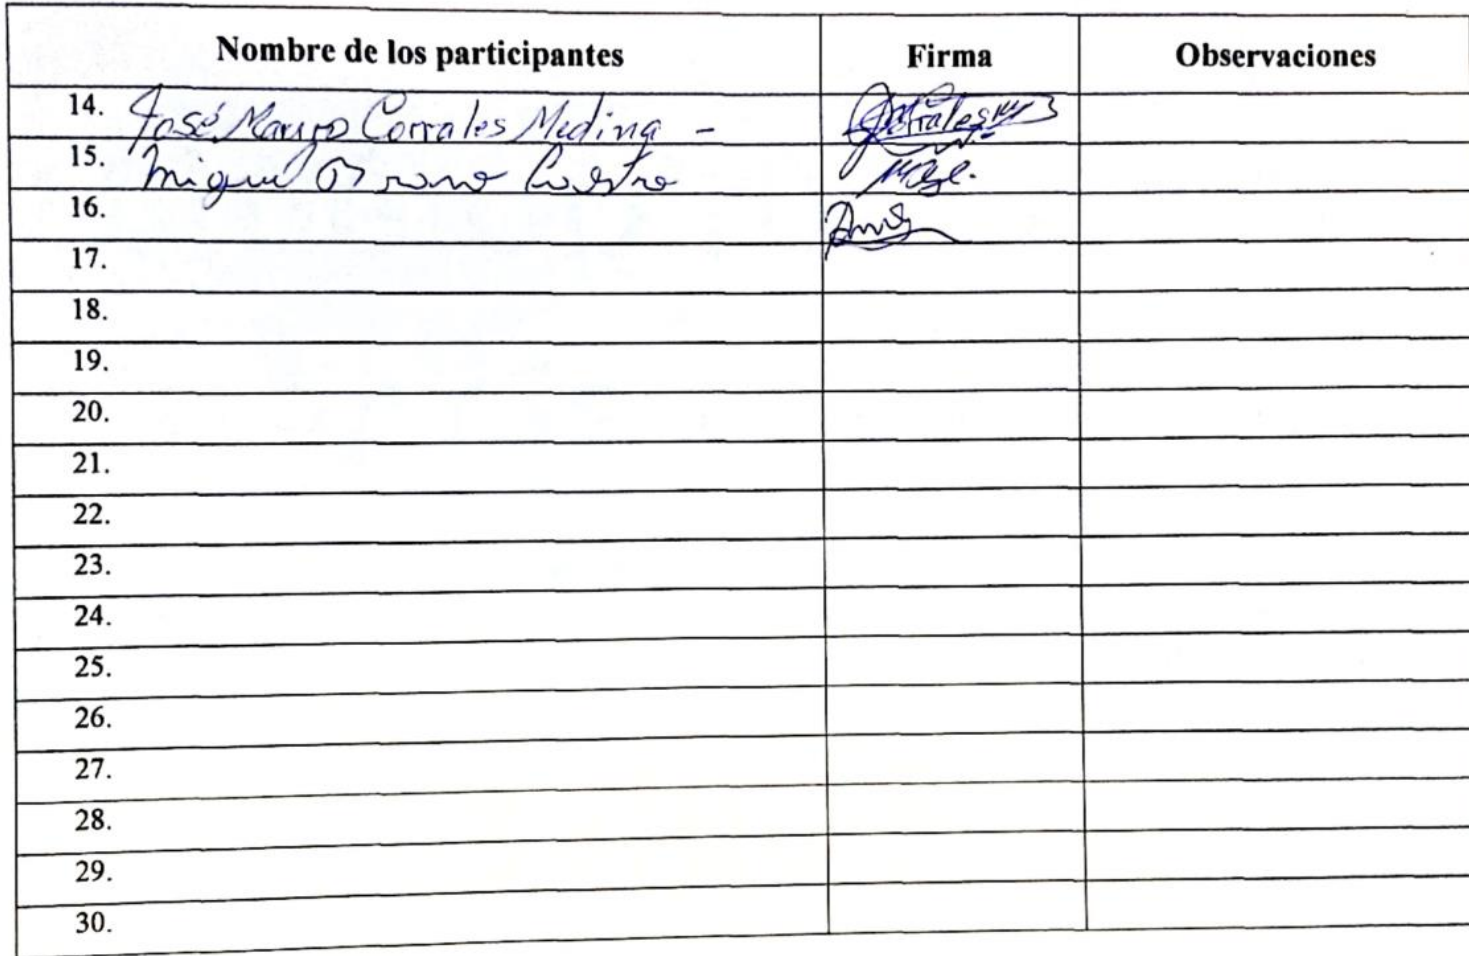 Nombre de los participantes Firma Observaciones
14. José Mauro Corrales Medina -
15. Miguel Castro
16.
17.
18.
19.
20.
21.
22.
23.
24.
25.
26.
27.
28.
29.
30.